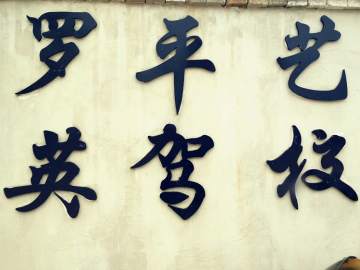 罗平艺
英驾校